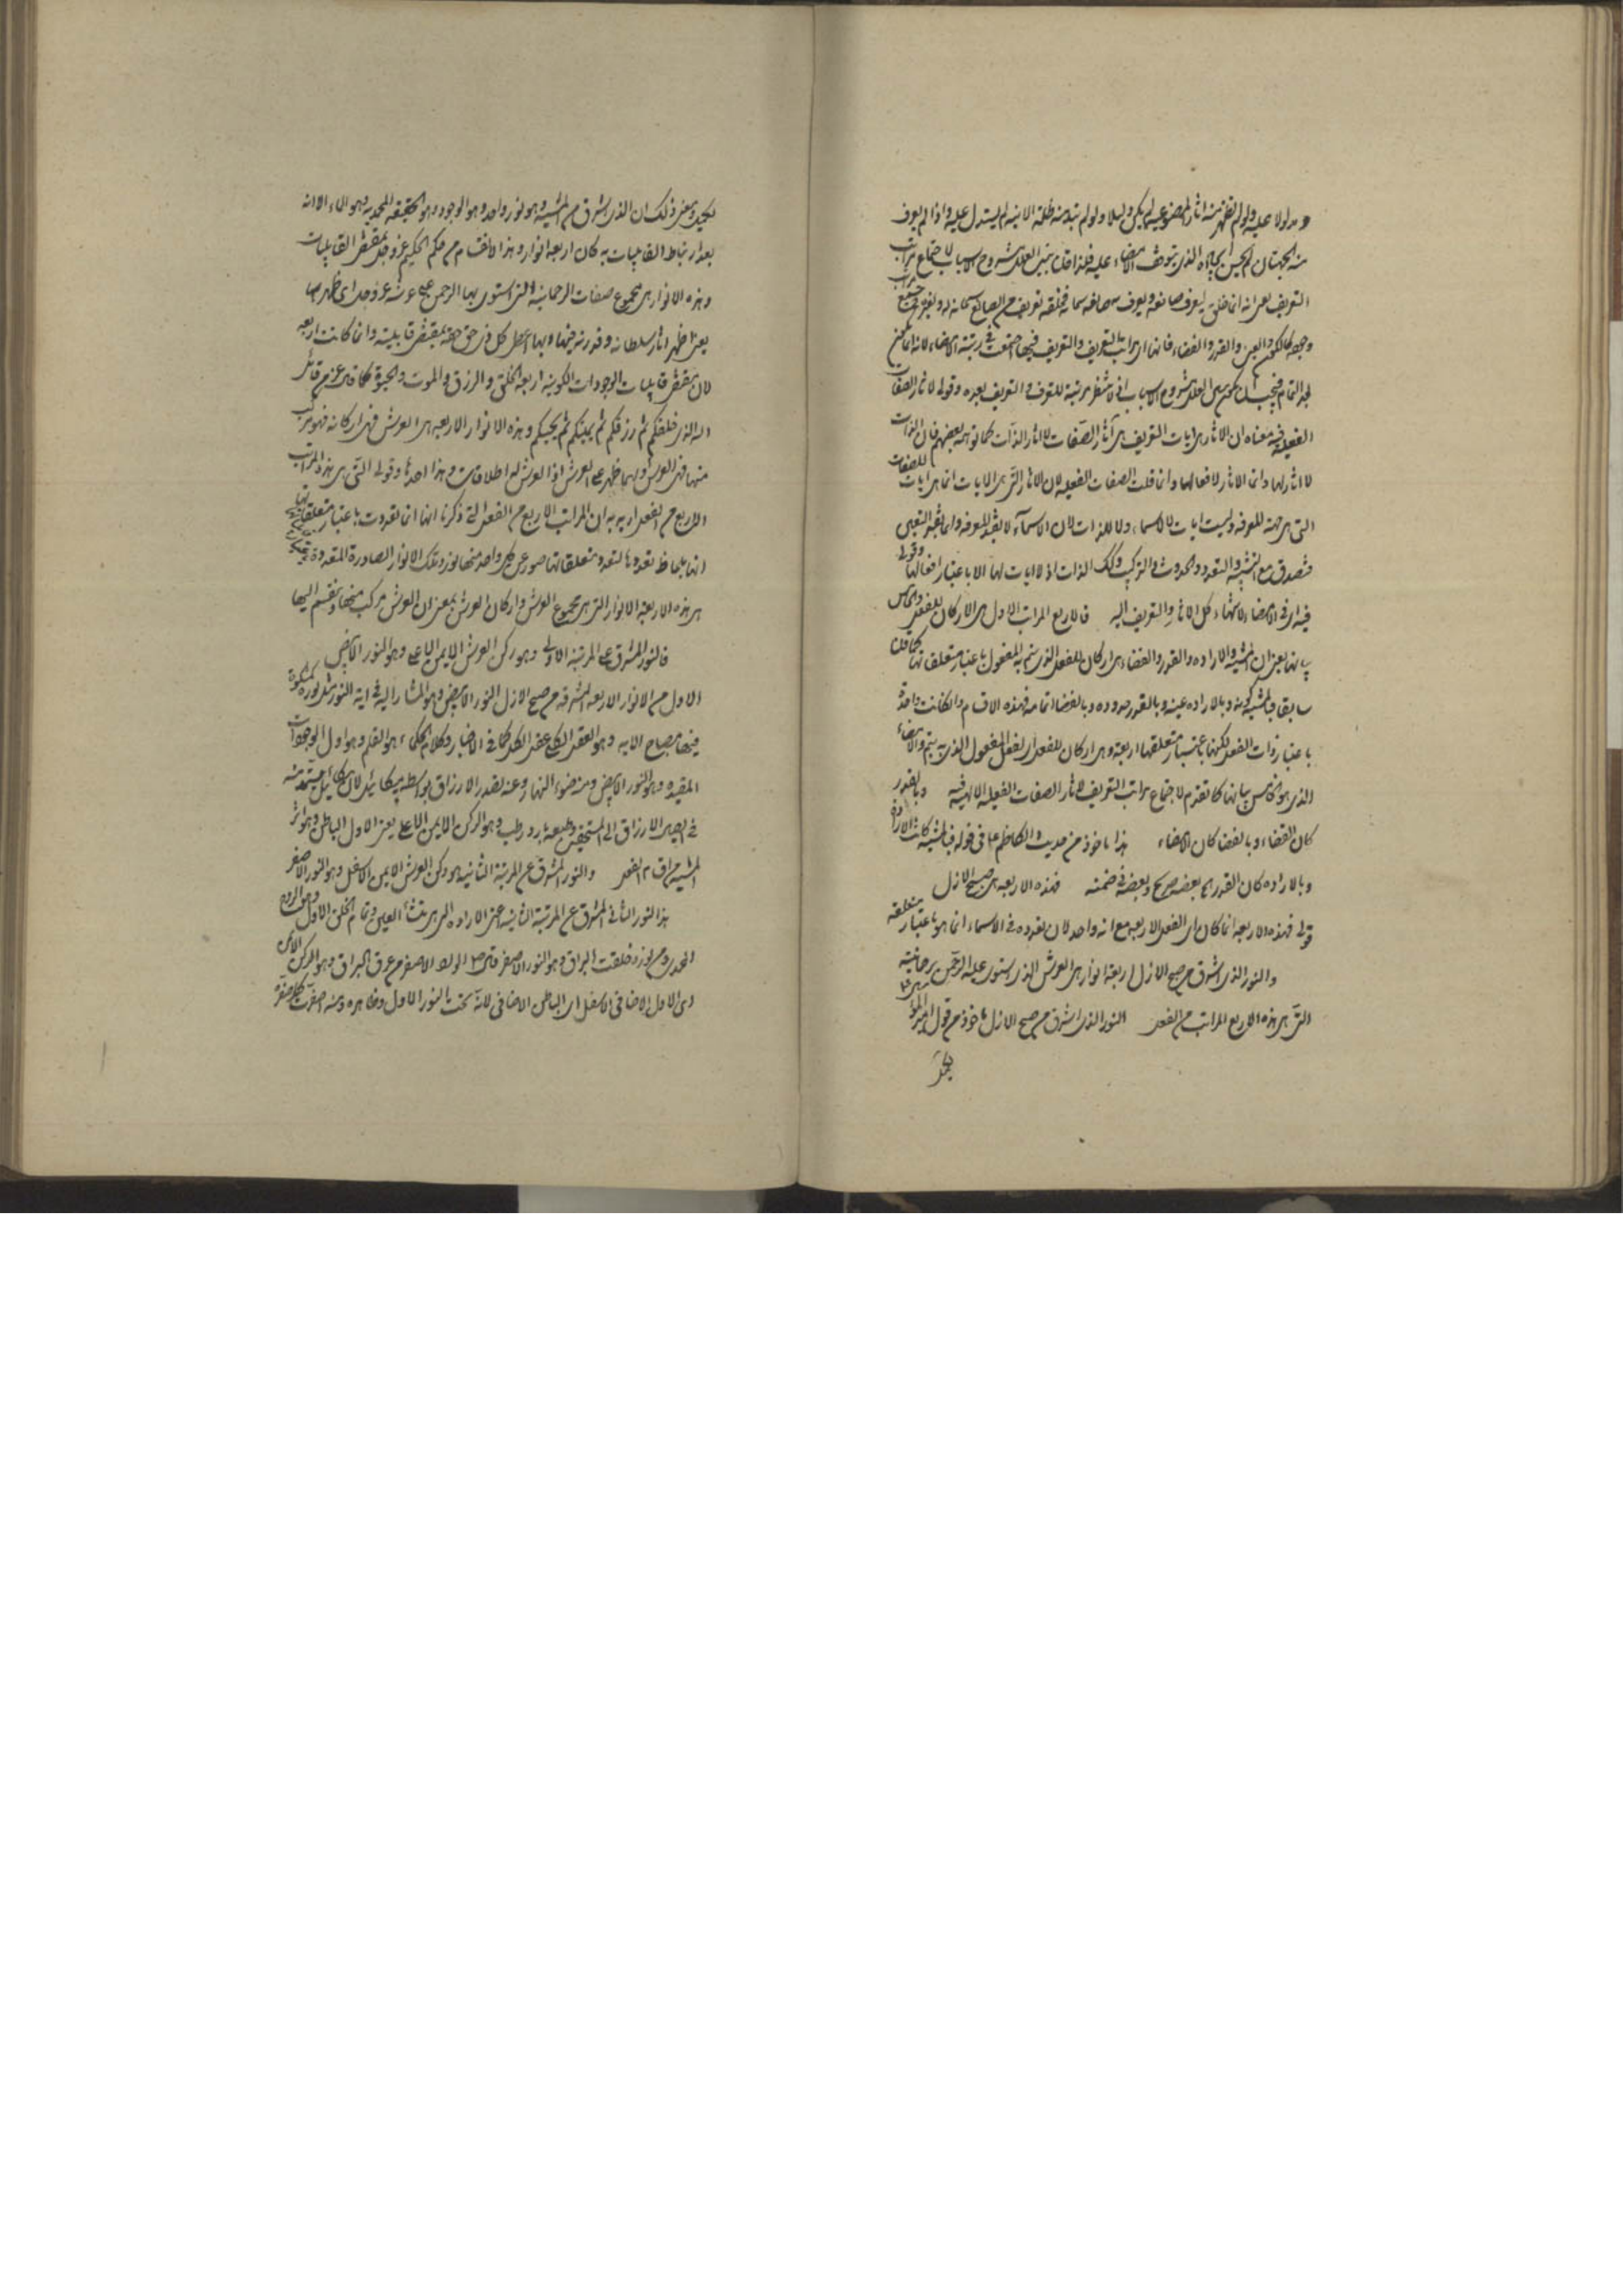 و مدلولا عليه ولو لم تظهر منه آثار لم يكن دليلا ولو لم تبد منه ظلمة الانية لم يستدل عليه واذا لم يعرف
الذى يتوقف الامضاء عليه فلذا قلت مبين العلل مشروح الاسباب لاجتماع مراتب
التعريف يعنى انه انما خلق ليعرف صانعه ويعرف
والعين والقدر والقضاء فانها مراتب التعريف والتعريف فيها اجتمعت فى رتبة الامضاء لانه
بعد التمام مبين العلل مشروح الاسباب اذ لا تنتظر مرتبة للتعرف والتعريف بعده وقولى لاثار الصفات
الفعلية معناه ان الاثار هى ايات التعريف هى آثار الصفات لا اثار الذات كما توهمه بعضهم فان الذات
لا اثار لها وانما الاثار لافعالها وانما قلت الصفات الفعلية لان الاثار التى هى الايات انما هى ايات للصفات
التى هى جهة المعرفة وليست ايات للاسماء ولا للذات لان الاسماء لا تفيد المعرفة وانما تفيد التعيين
فتصدق مع التشبيه والتعدد والحدوث والتركيب وكذلك الذات اذ لا ايات لها الا باعتبار افعالها وقولى
فيه اى فى الامضاء كل الاثار والتعريف اليه فالاربع المراتب الاول هى الاركان للفعل والخامس
بيانها يعنى ان المشية والارادة والقدر والقضاء هى اركان للفعل الذى يتم به المفعول باعتبار متعلقاتها كما قلنا
سابقا فبالمشية كونه وبالارادة عينه وبالقدر حدوده وبالقضاء اتمامه فهذه الاقسام وان كانت واحدة
باعتبار ذات الفعل لكنها باعتبار متعلقها اربعة وهى اركان للفعل اى لفعل المفعول الذى به يتم والامضاء
الذى هو الخامس بيانها كما تقدم لاجتماع مراتب التعريف لاثار الصفات الفعلية الالهية فيه وبالقدر
كان القضاء وبالقضاء كان الامضاء هذا ماخوذ من حديث الكاظم ع فى قوله فبالمشية كانت الارادة
وبالارادة كان القدر بعضه صريح وبعضه فى ضمنه فهذه الاربعة هى صبح الازل
قولى فهذه الاربعة انما كان اى الفعل الاربعة مع انه واحد لان تعدده فى الاسماء انما هو باعتبار متعلقه
والنور الذى اشرق من صبح الازل اربعة انوار هى العرش الذى استوى عليه الرحمن برحمانيته
التى هى هذه الاربع المراتب من الفعل النور الذى اشرق من صبح الازل ماخوذ من قول امير المؤمنين ع
لكميل
لكميل ومعنى ذلك ان الذى اشرق من المشية هو نور واحد وهو الوجود وهو الحقيقة المحمدية وهو الماء الا انه
بعد ارتباط القابليات به كان اربعة انوار وهذا الانقسام من حكم الحكيم عز وجل بمقتضى القابليات
وهذه الانوار هى مجموع صفات الرحمانية التى استوى بها الرحمن على عرشه عز وجل اى ظهر بها
يعنى اظهر اثار سلطانه وقدرته فيها وبها اعطى كل ذى حق حقه بمقتضى قابليته وانما كانت اربعة
لان مقتضى قابليات الوجودات الكونية اربعة الخلق والرزق والموت والحيوة كما قال عز من قائل
الله الذى خلقكم ثم رزقكم ثم يميتكم ثم يحييكم وهذه الانوار الاربعة هى العرش فهى اركانه فهو مركب
منها فهى العرش وبها ظهر على العرش اذ العرش له اطلاقات وهذا احدها وقولى التى هى هذه المراتب
الاربع من الفعل اريد به ان المراتب الاربع من الفعل التى ذكرنا انها انما تعددت باعتبار متعلقاتها
انها بلحاظ تعددها لتعدد متعلقاتها صدر عن كل واحد منها نور وتلك الانوار الصادرة المتعددة
هى هذه الاربعة الانوار التى هى مجموع العرش واركان العرش بمعنى ان العرش مركب منها وينقسم اليها
فالنور المشرق عن المرتبة الاولى وهو ركن العرش الايمن الاعلى وهو النور الابيض
الاول من الانوار الاربعة المشرقة من صبح الازل النور الابيض وهو المشار اليه فى اية النور مثل نوره كمشكوة
فيها مصباح الاية وهو العقل الكلى عقل الكل كما فى الاخبار وكلام الحكماء هو القلم وهو اول الوجودات
المقيدة وهو النور الابيض ومنه ضوء النهار وعنه تصدر الارزاق بواسطة ميكائيل لان ميكائيل يستمد منه
فى ايصال الارزاق الى المستحقين وطبعه بارد رطب وهو الركن الايمن الاعلى يعنى الاول الباطن وهو اثر
المشية من الفعل والنور المشرق عن المرتبة الثانية هو ركن العرش الايمن الاسفل وهو النور الاصفر
هذا النور الثانى المشرق عن المرتبة الثانية اعنى الارادة التى هى منشأ العين وتمام الخلق الاول وهو الروح
المحمدى من نوره خلقت البراق وهو النور الاصفر قال ص الورد الاصفر من عرق البراق وهو الركن الايمن
اى الاول الاضافى الاسفل اى الباطن الاضافى لانه تحت النور الاول وظاهره ومنه اصفرت كل صفرة